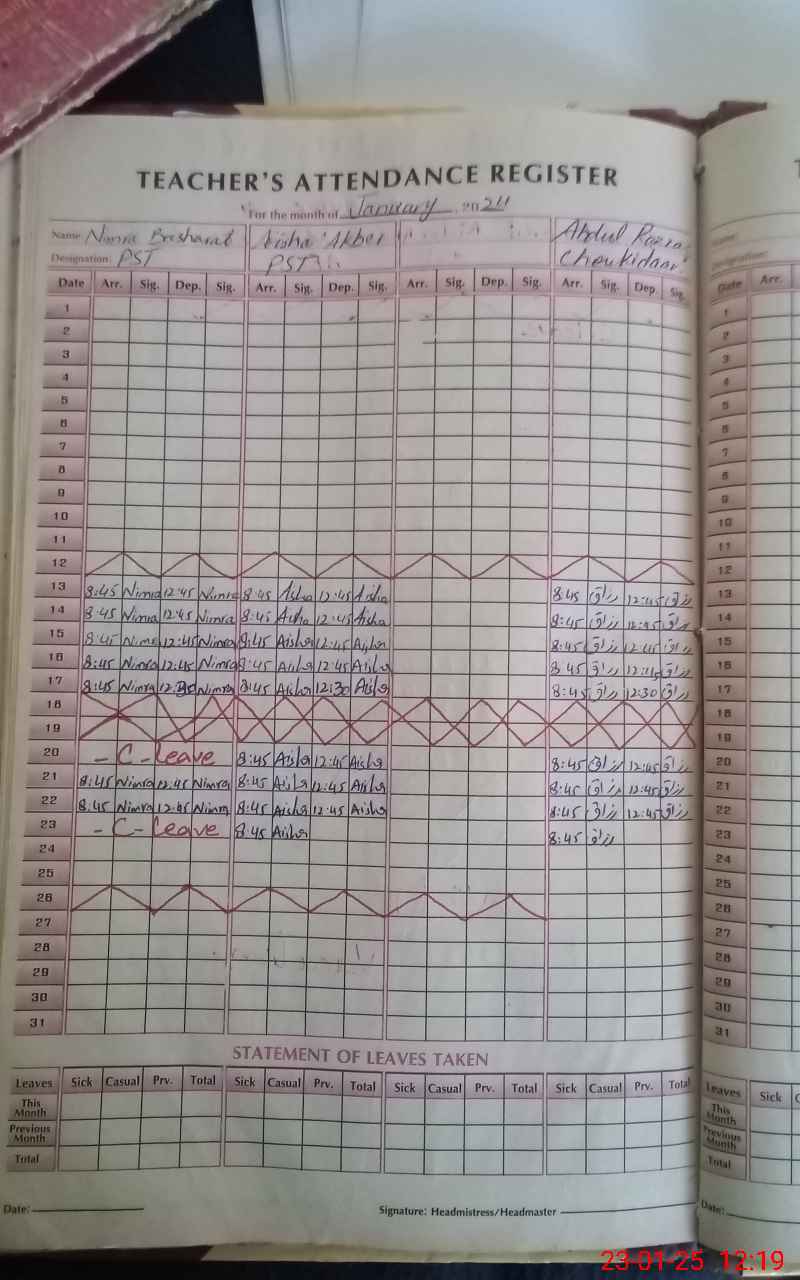 TEACHER'S ATTENDANCE REGISTER
For the month of January 2024
Name Nimra Basharat Aisha Akber Abdul Razza
Designation: PST PST Choukidaar
Date Arr. Sig. Dep. Sig. Arr. Sig. Dep. Sig. Arr. Sig. Dep. Sig. Arr. Sig. Dep. Sig. Date Arr.
1 1
2 2
3 3
4 4
5 5
6 6
7 7
8 8
9 9
10 10
11 11
12 12
13 8:45 Nimra 12:45 Nimra 8:45 Aisha 12:45 Aisha 8:45 رزاق 12:45 رزاق 13
14 8:45 Nimra 12:45 Nimra 8:45 Aisha 12:45 Aisha 8:45 رزاق 12:45 رزاق 14
15 8:45 Nimra 12:45 Nimra 8:45 Aisha 12:45 Aisha 8:45 رزاق 12:45 رزاق 15
16 8:45 Nimra 12:45 Nimra 8:45 Aisha 12:45 Aisha 8:45 رزاق رزاق 16
17 8:45 Nimra Nimra 8:45 Aisha 12:30 Aisha 8:45 رزاق 12:30 رزاق 17
18 18
19 19
20 - C - Leave 8:45 Aisha 12:45 Aisha 8:45 رزاق 12:45 رزاق 20
21 8:45 Nimra 12:45 Nimra 8:45 Aisha 12:45 Aisha 8:45 رزاق 12:45 رزاق 21
22 8:45 Nimra 12:45 Nimra 8:45 Aisha 12:45 Aisha 8:45 رزاق 12:45 رزاق 22
23 - C - Leave 8:45 Aisha 8:45 رزاق 23
24 24
25 25
26 26
27 27
28 28
29 29
30 30
31 31
STATEMENT OF LEAVES TAKEN
Leaves Sick Casual Prv. Total Sick Casual Prv. Total Sick Casual Prv. Total Sick Casual Prv. Total Leaves Sick
This Month This Month
Previous Month Previous Month
Total Total
Date: Signature: Headmistress/Headmaster Date:
23-01-25 12:19